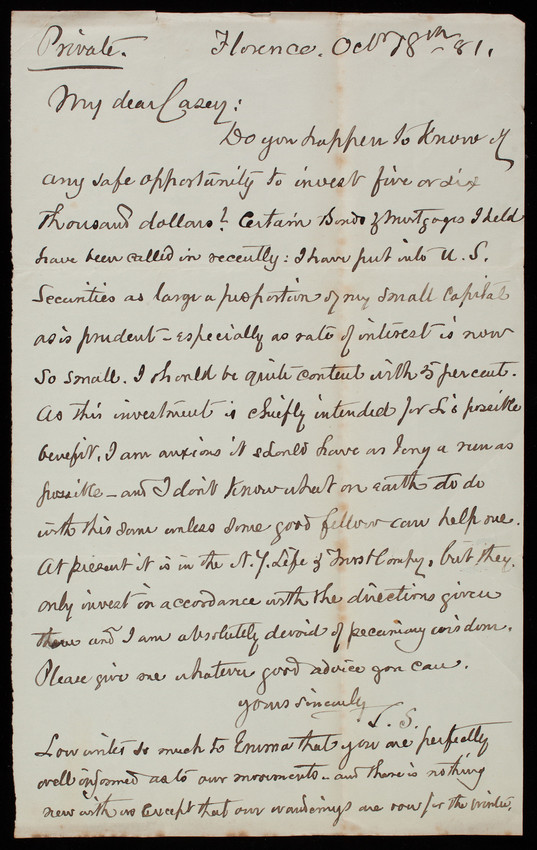 Private. Florence. Octr 18th -81.
My dear Casey:
Do you happen to know of
any safe opportunity to invest five or six
thousand dollars? Certain Bonds & Mortgages I held
have been called in recently: I have put into U.S.
Securities as large a proportion of my small capital
as is prudent - especially as rate of interest is now
so small. I should be quite content with 5 percent.
As this investment is chiefly intended for possible
benefit, I am anxious it should have as long a run as
possible - and I don't know what on earth to do
with this sum unless some good fellow can help me.
At present it is in the N.Y. Life & Trust Compy, but they
only invest in accordance with the directions given
them and I am absolutely devoid of pecuniary wisdom.
Please give me whatever good advice you can.
yours sincerely
T. S.
Lou writes so much to Emma that you are perfectly
well informed as to our movements - and there is nothing
new with us except that our wanderings are over for the winter.